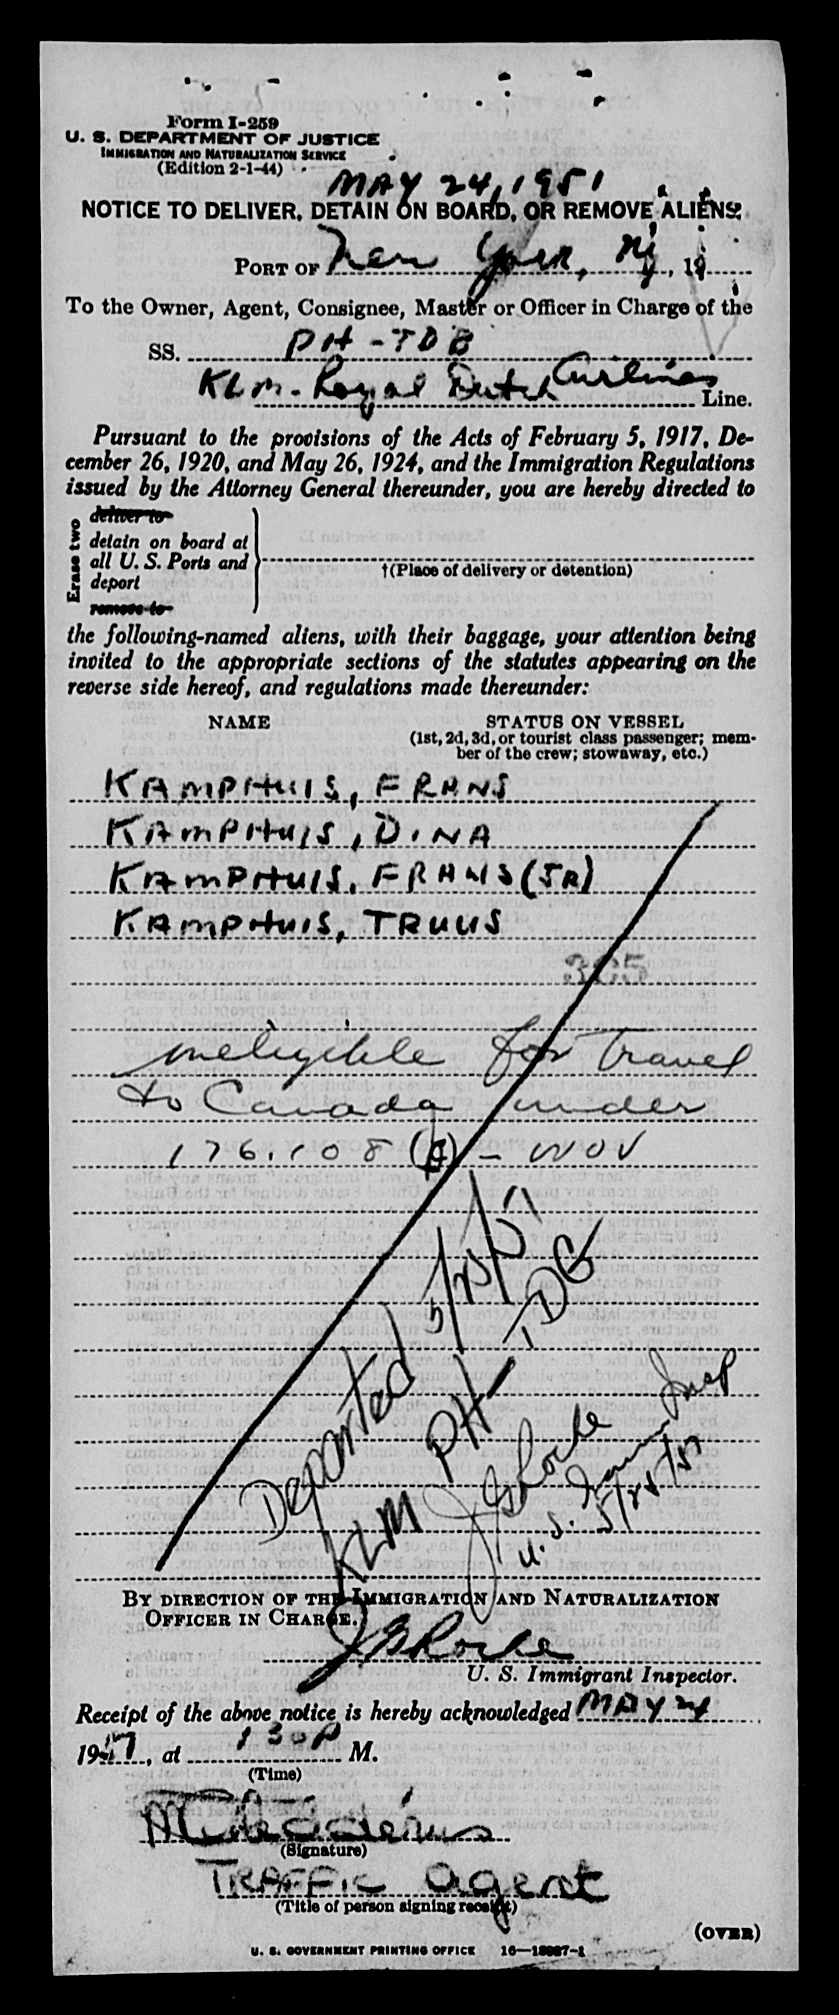 Form I-259
U. S. DEPARTMENT OF JUSTICE
IMMIGRATION AND NATURALIZATION SERVICE
(Edition 2-1-44)
MAY 24, 1951
NOTICE TO DELIVER, DETAIN ON BOARD, OR REMOVE ALIENS
PORT OF New York, NY, 19
To the Owner, Agent, Consignee, Master or Officer in Charge of the
SS. PH-TDB
KLM-Royal Dutch Airlines Line.
Pursuant to the provisions of the Acts of February 5, 1917, De-
cember 26, 1920, and May 26, 1924, and the Immigration Regulations
issued by the Attorney General thereunder, you are hereby directed to
Erase two
deliver to
detain on board at
all U. S. Ports and
deport
remove to
†(Place of delivery or detention)
the following-named aliens, with their baggage, your attention being
invited to the appropriate sections of the statutes appearing on the
reverse side hereof, and regulations made thereunder:
NAME STATUS ON VESSEL
(1st, 2d, 3d, or tourist class passenger; mem-
ber of the crew; stowaway, etc.)
KAMPHUIS, FRANS
KAMPHUIS, DINA
KAMPHUIS, FRANS (JR)
KAMPHUIS, TRUUS
325
ineligible for travel
to Canada under
176.108 - WOV
Departed 5/25/51
KLM PH-TDG
U.S. Imm Insp
BY DIRECTION OF THE IMMIGRATION AND NATURALIZATION
OFFICER IN CHARGE.
U. S. Immigrant Inspector.
Receipt of the above notice is hereby acknowledged MAY 24
19, at 130 P M.
(Time)
(Signature)
TRAFFIC agent
(Title of person signing receipt)
(OVER)
U. S. GOVERNMENT PRINTING OFFICE